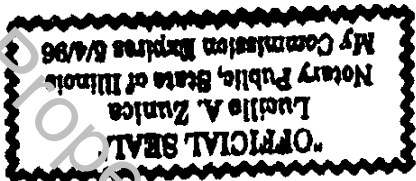 "OFFICIAL SEAL"
Lucille A. Zunica
Notary Public, State of Illinois
My Commission Expires 5/4/96
Prope